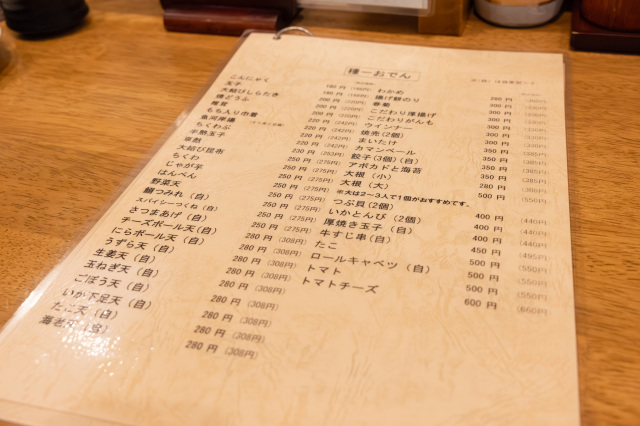 種一おでん
こんにゃく
玉子
大結びしらたき
焼どうふ
もち入り巾着
魚河岸揚
ちくわぶ
半熟玉子
大結び昆布
ちくわ
じゃが芋
はんぺん
野菜天
鰯つみれ（自）
スパイシーつくね（自）
さつまあげ（自）
チーズボール天（自）
にらボール天（自）
うずら天（自）
生姜天（自）
玉ねぎ天（自）
ごぼう天（自）
いか下足天（自）
たこ天（自）
海老天（自）
180 円
180 円
200 円
200 円
200 円
220 円 (242円)
220 円 (242円)
220 円 (242円)
230 円
250 円 (275円)
250 円 (275円)
250 円 (275円)
250 円 (275円)
250 円 (275円)
250 円 (275円)
280 円 (308円)
280 円 (308円)
280 円 (308円)
280 円 (308円)
280 円 (308円)
280 円 (308円)
280 円 (308円)
わかめ
揚げ餅のり
春菊
こだわり厚揚げ
こだわりがんも
ウインナー
焼売(2個)
まいたけ
カマンベール
餃子(3個)（自）
アボカドと海苔
大根（小）
大根（大）
※大は2～3人で1個がおすすめです。
つぶ貝(2個)
いかとんび（2個）
厚焼き玉子（自）
牛すじ串(自)
たこ
ロールキャベツ（自）
トマト
トマトチーズ
280 円
300 円
300 円
300 円
300 円
300 円
350 円
350 円
350 円
350 円
280 円
500 円 (550円)
400 円 (440円)
400 円 (440円)
450 円 (495円)
500 円 (550円)
500 円 (550円)
600 円 (660円)